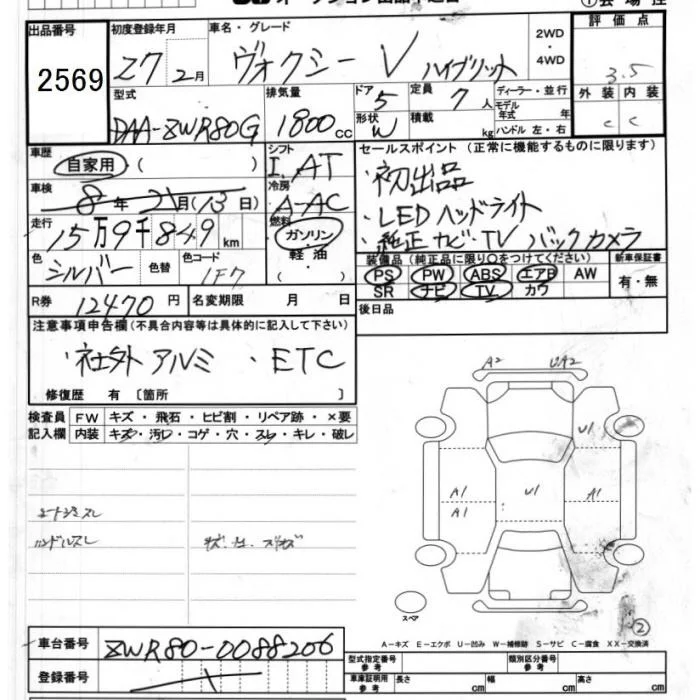 出品番号 初度登録年月 車名・グレード 2WD ・ 4WD 評価点
2569 27 2月 ヴォクシー V ハイブリット 3.5
型式 排気量 ドア 5 定員 7人 ディーラー・並行 外装 内装
DAA-ZWR80G 1800cc 形状 W 積載 kg モデル年式 年 ハンドル 左・右 C C
車歴 自家用 ( ) シフト I.AT セールスポイント (正常に機能するものに限ります)
車検 8年 2月(13日) 冷房 A-AC ・初出品
走行 15万9千849km 燃料 ガソリン 軽油 ( ) ・LEDヘッドライト
・純正ナビ・TV バックカメラ
色 シルバー 色替 色コード 1F7 装備品(純正品に限り○をつけてください) 新車保証書
PS PW ABS エアB AW 有・無
SR ナビ TV カワ
R券 12470円 名変期限 月 日 後日品
注意事項申告欄(不具合内容等は具体的に記入して下さい)
・社外アルミ ・ETC
修復歴 有 〔箇所 〕
A2 UA2
検査員 FW キズ・飛石・ヒビ割・リペア跡・×要
記入欄 内装 キズ・汚レ・コゲ・穴・スレ・キレ・破レ
U1
A1 U1 A1
A1
ハンドルスレ
スペア
2
A-キズ E-エクボ U-凹み W-補修跡 S-サビ C-腐食 XX-交換済
車台番号 ZWR80-0088206
登録番号
型式指定番号 参考 類別区分番号 参考
車庫証明用 参考 長さ cm 幅 cm 高さ cm